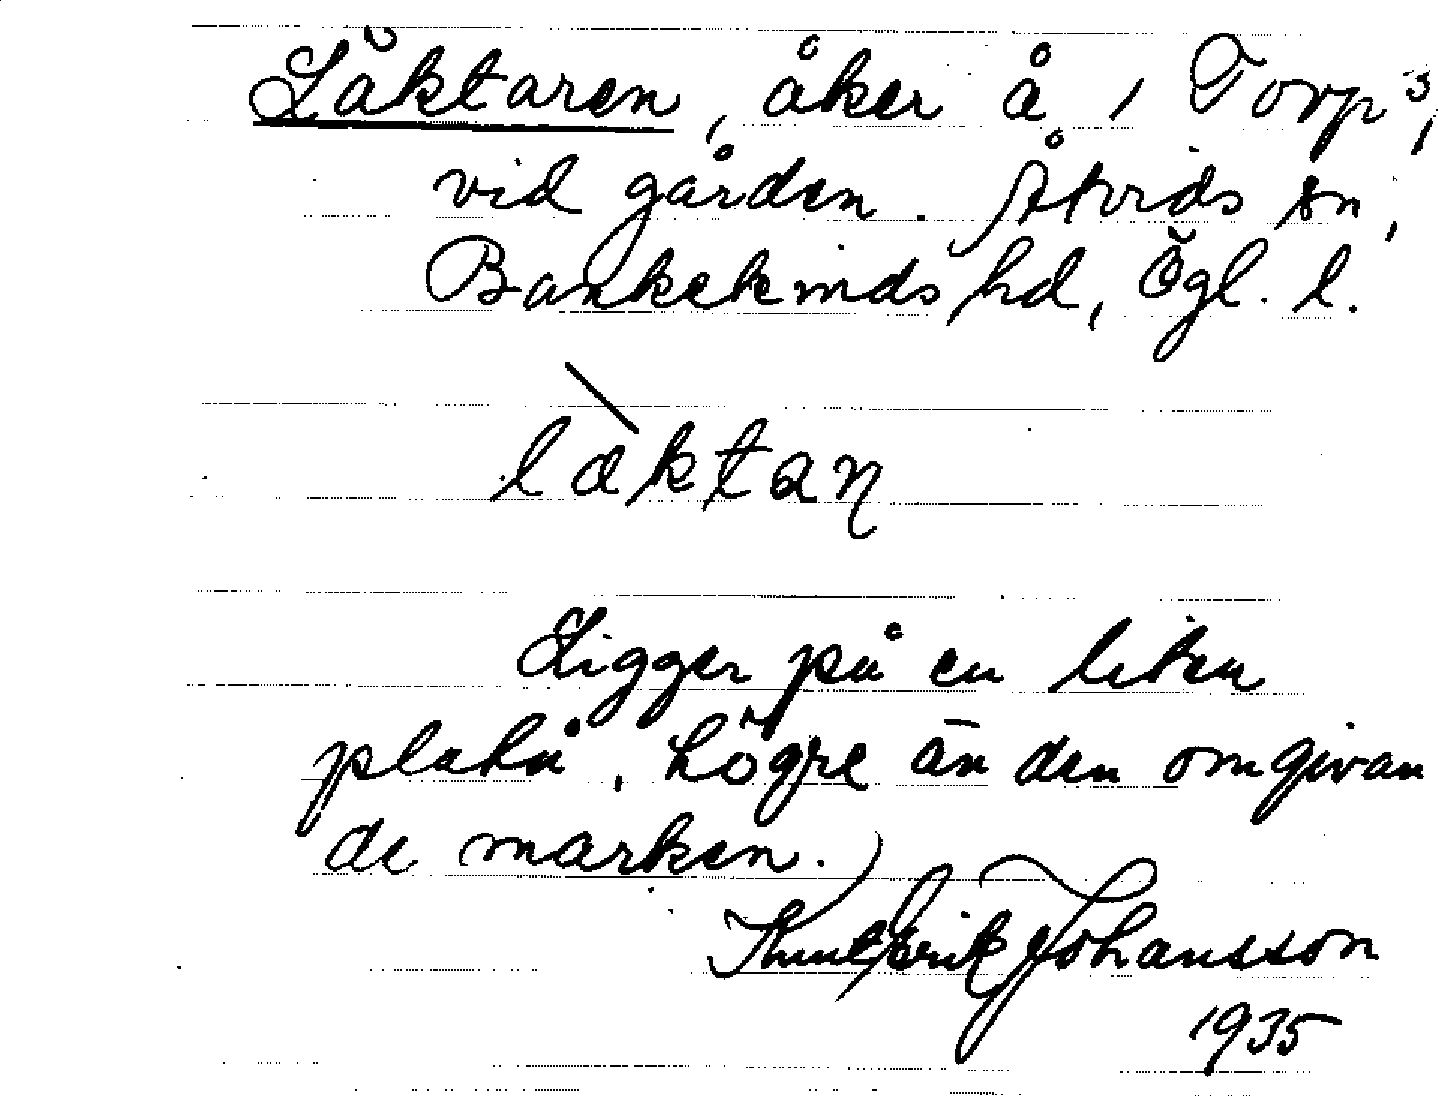 Läktaren, åker å 1 Torp 3,
vid gården. Åtvids sn,
Bankekinds hd, Ögl. l.
làktan
Ligger på en liten
platå, högre än den omgivan
de marken.
Knut Erik Johansson
1935